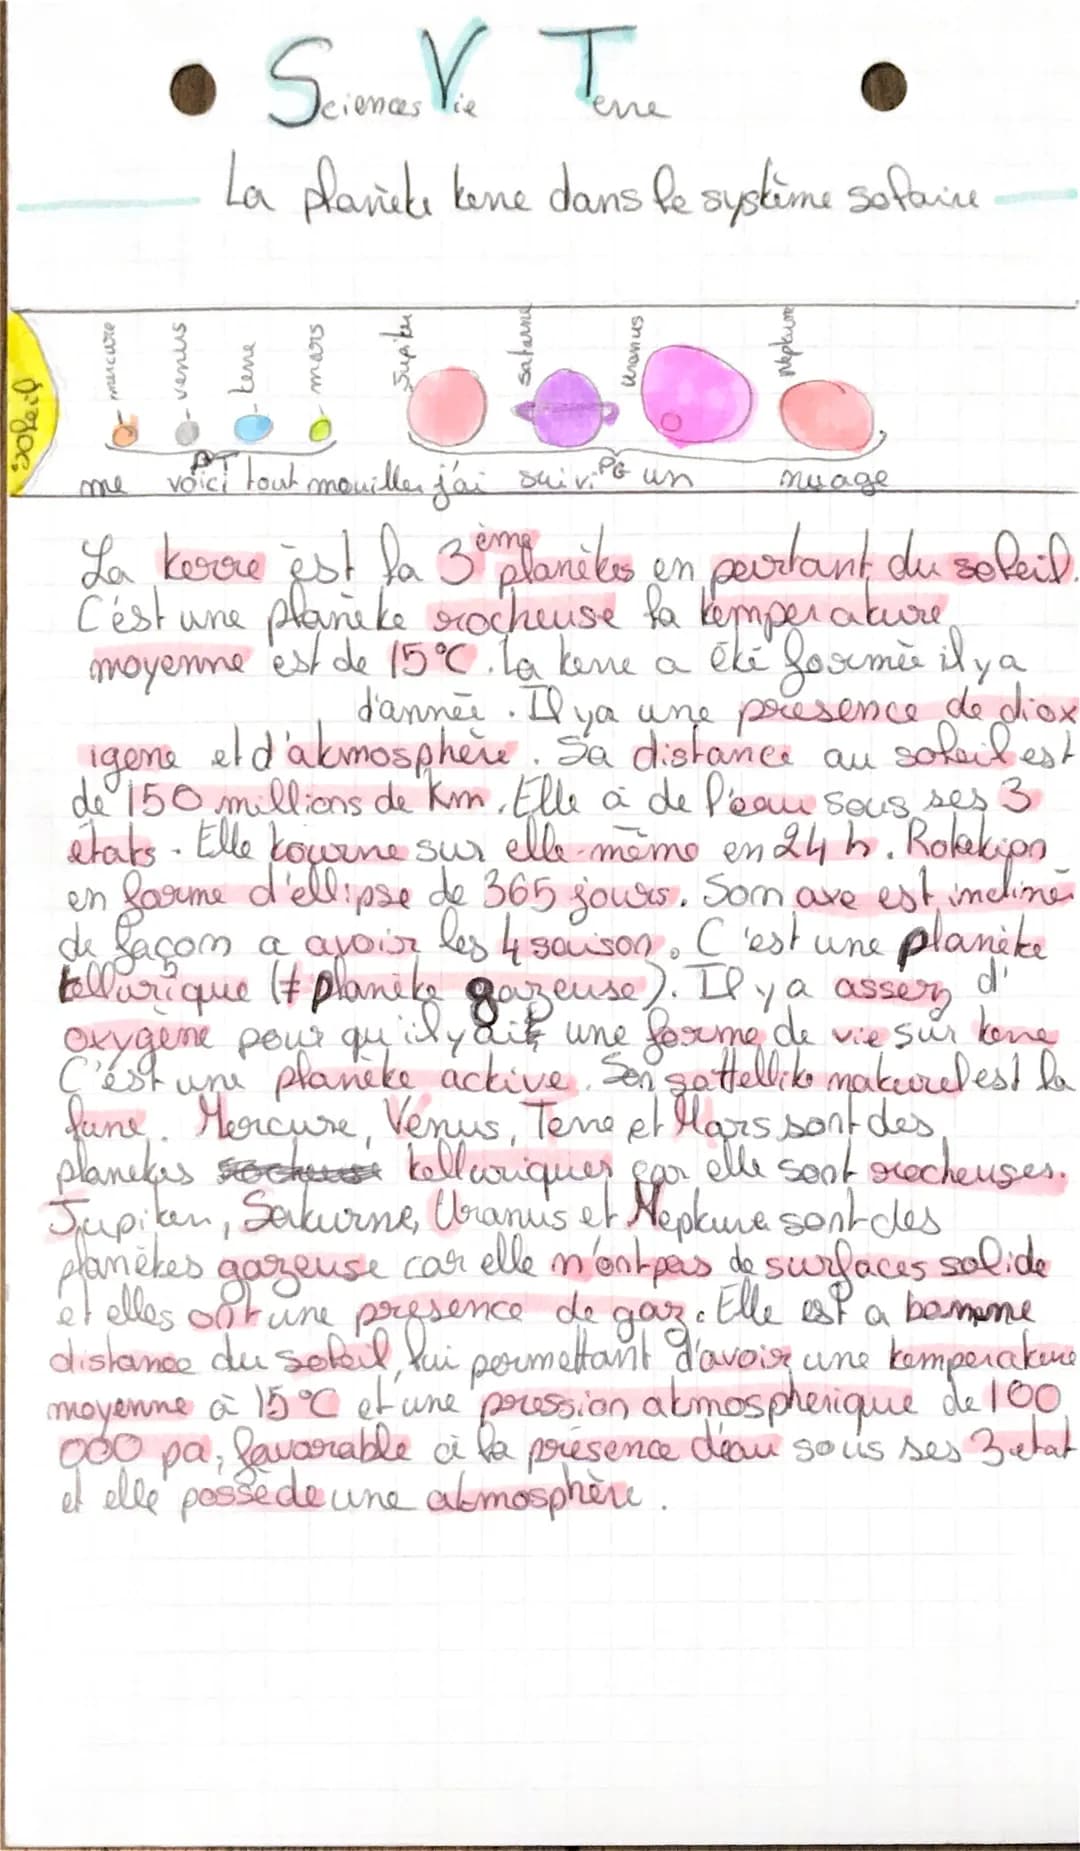 Sciences Vie Terre
La planète terre dans le système solaire
soleil
mercure
venus
terre
mars
Jupiter
saturne
uranus
Neptune
PT
PG
me voici tout mouiller j'ai suivi un nuage
La terre est la 3ème planètes en partant du soleil.
C'est une planète rocheuse la temperature
moyenne est de 15°C. La terre a été formée il y a
d'année. Il y a une présence de diox
igene et d'atmosphère. Sa distance au soleil est
de 150 millions de Km. Elle à de l'eau sous ses 3
états. Elle tourne sur elle-même en 24 h. Rotation
en forme d'ellipse de 365 jours. Son axe est incliné
de façon a avoir les 4 saison. C'est une planète
tellurique (≠ planète gazeuse). Il y a assez d'
oxygène pour qu'il y ait une forme de vie sur terre
C'est une planète active. Son sattellite naturel est la
lune. Mercure, Vénus, Terre et Mars sont des
planètes telluriques car elle sont rocheuses.
Jupiter, Saturne, Uranus et Neptune sont des
planètes gazeuse car elle n'ont pas de surfaces solide
et elles ont une présence de gaz. Elle est a bonne
distance du soleil, lui permettant d'avoir une temperature
moyenne à 15°C et une pression atmospherique de 100
000 pa, favorable à la présence d'eau sous ses 3 état
et elle possède une atmosphère.